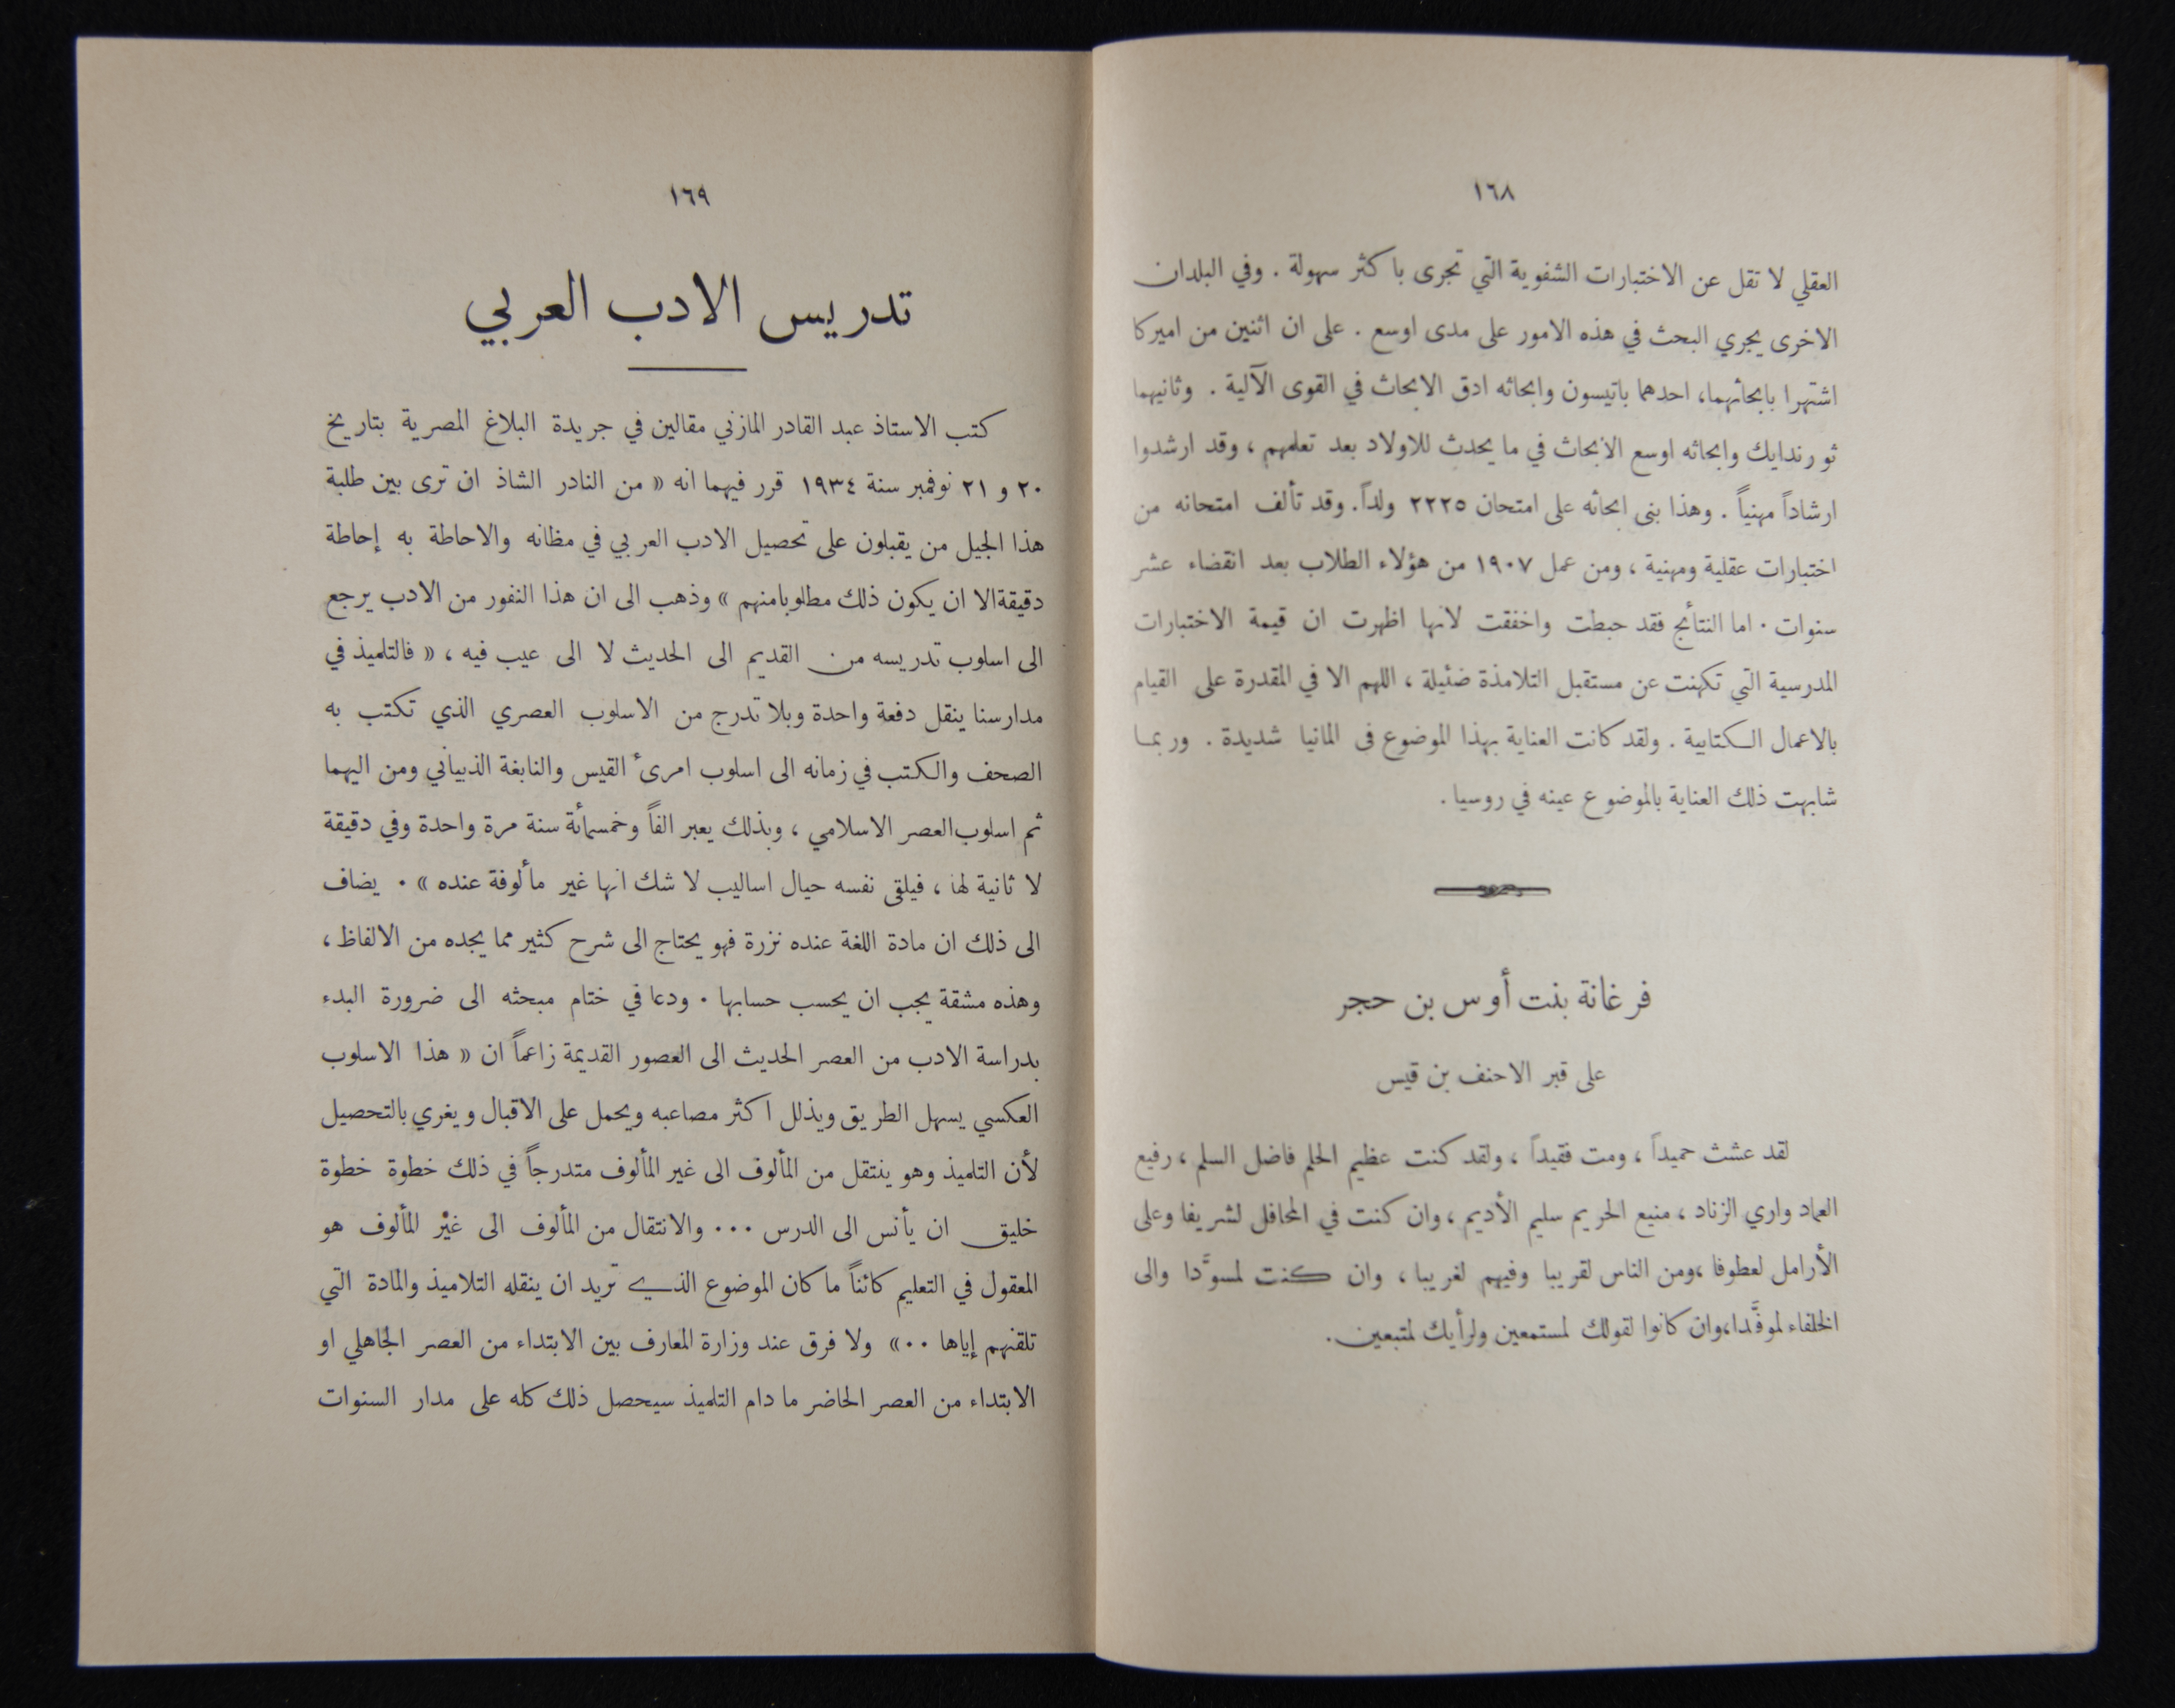 ١٦٨
العقلي لا تقل عن الاختبارات الشفوية التي تجرى باكثر سهولة . وفي البلدان
الاخرى يجري البحث في هذه الامور على مدى اوسع . على ان اثنين من اميركا
اشتهرا بابحاثهما، احدهما باتيسون وابحاثه ادق الابحاث في القوى الآلية . وثانيهما
ثورندايك وابحاثه اوسع الابحاث في ما يحدث للاولاد بعد تعلمهم ، وقد ارشدوا
ارشاداً مهنياً . وهذا بنى ابحاثه على امتحان ٢٢٢٥ ولداً. وقد تألف امتحانه من
اختبارات عقلية ومهنية ، ومن عمل ١٩٠٧ من هؤلاء الطلاب بعد انقضاء عشر
سنوات . اما النتائج فقد حبطت واخفقت لانها اظهرت ان قيمة الاختبارات
المدرسية التي تكهنت عن مستقبل التلامذة ضئيلة ، اللهم الا في المقدرة على القيام
بالاعمال الكتابية . ولقد كانت العناية بهذا الموضوع في المانيا شديدة . وربما
شابهت ذلك العناية بالموضوع عينه في روسيا .
فرغانة بنت أوس بن حجر
على قبر الاحنف بن قيس
لقد عشت حميداً ، ومت فقيداً ، ولقد كنت عظيم الحلم فاضل السلم ، رفيع
العماد واري الزناد ، منيع الحريم سليم الأديم ، وان كنت في المحافل لشريفا وعلى
الأرامل لعطوفا ،ومن الناس لقريبا وفيهم لغريبا ، وان كنت لمسوَّدا والى
الخلفاء لموفَّدا،وان كانوا لقولك لمستمعين ولرأيك لمتبعين.
١٦٩
تدريس الادب العربي
كتب الاستاذ عبد القادر المازني مقالين في جريدة البلاغ المصرية بتاريخ
٢٠ و ٢١ نوفمبر سنة ١٩٣٤ قرر فيهما انه « من النادر الشاذ ان ترى بين طلبة
هذا الجيل من يقبلون على تحصيل الادب العربي في مظانه والاحاطة به إحاطة
دقيقة الا ان يكون ذلك مطلوبا منهم » وذهب الى ان هذا النفور من الادب يرجع
الى اسلوب تدريسه من القديم الى الحديث لا الى عيب فيه ، « فالتلميذ في
مدارسنا ينقل دفعة واحدة وبلا تدرج من الاسلوب العصري الذي تكتب به
الصحف والكتب في زمانه الى اسلوب امرئ القيس والنابغة الذبياني ومن اليهما
ثم اسلوب العصر الاسلامي ، وبذلك يعبر الفاً وخمسمائة سنة مرة واحدة وفي دقيقة
لا ثانية لها ، فيلقى نفسه حيال اساليب لا شك انها غير مألوفة عنده » . يضاف
الى ذلك ان مادة اللغة عنده نزرة فهو يحتاج الى شرح كثير مما يجده من الالفاظ ،
وهذه مشقة يجب ان يحسب حسابها . ودعا في ختام مبحثه الى ضرورة البدء
بدراسة الادب من العصر الحديث الى العصور القديمة زاعماً ان « هذا الاسلوب
العكسي يسهل الطريق ويذلل اكثر مصاعبه ويحمل على الاقبال ويغري بالتحصيل
لأن التلميذ وهو ينتقل من المألوف الى غير المألوف متدرجاً في ذلك خطوة خطوة
خليق ان يأنس الى الدرس ... والانتقال من المألوف الى غير المألوف هو
المعقول في التعليم كائناً ما كان الموضوع الذي تريد ان ينقله التلاميذ والمادة التي
تلقنهم إياها ..» ولا فرق عند وزارة المعارف بين الابتداء من العصر الجاهلي او
الابتداء من العصر الحاضر ما دام التلميذ سيحصل ذلك كله على مدار السنوات